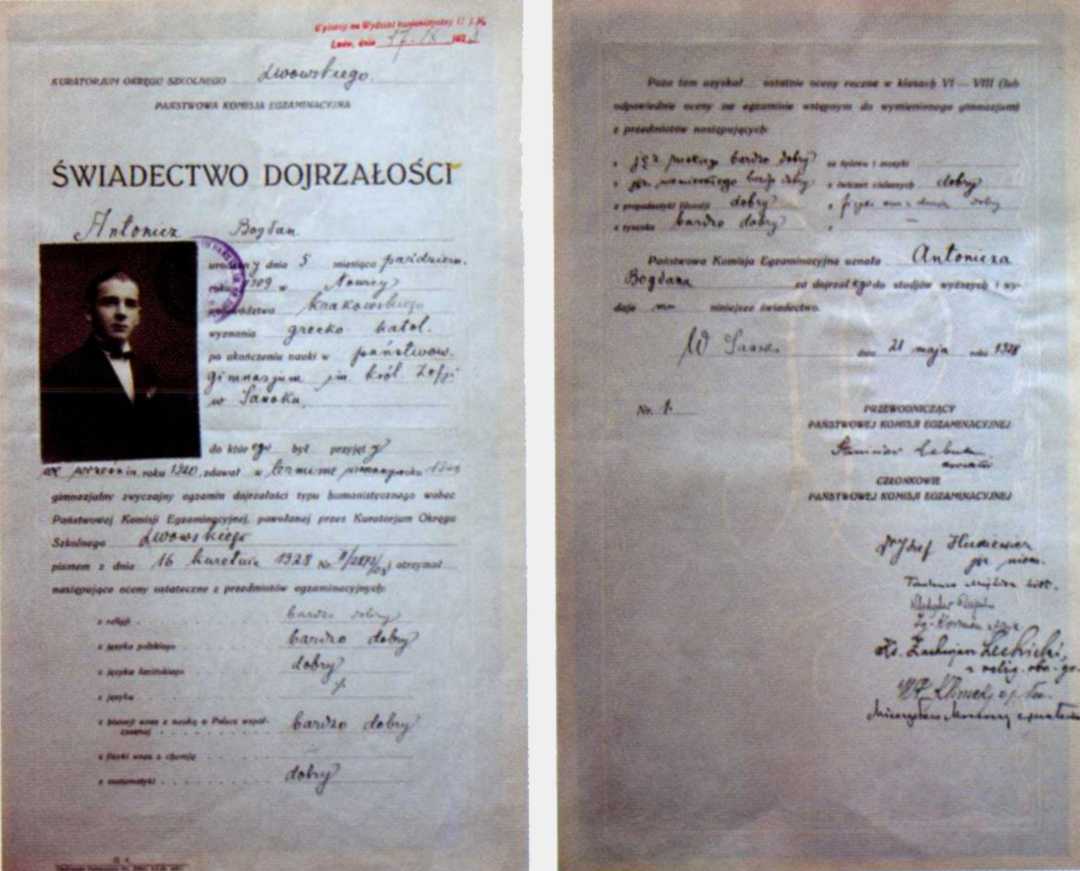 Wpisany na Wydział humanistyczny U. J. K.
Lwów, dnia 17. IX 192
KURATORJUM OKRĘGU SZKOLNEGO Lwowskiego.
PAŃSTWOWA KOMISJA EGZAMINACYJNA
ŚWIADECTWO DOJRZAŁOŚCI
Antonicz Bogdan
urodzony dnia 5 miesiąca październ.
roku 1909 w
województwa krakowskiego
wyznania grecko katol.
po ukończeniu nauki w państwow.
gimnazjum im król. Zofji
w Sanoku,
do którego był przyjęty
we wrześniu roku 1920, zdawał w terminie
gimnazjalny zwyczajny egzamin dojrzałości typu humanistycznego wobec
Państwowej Komisji Egzaminacyjnej, powołanej przez Kuratorjum Okręgu
Szkolnego Lwowskiego
pismem z dnia 16 kwietnia 1928 Nr. otrzymał
następujące oceny ostateczne z przedmiotów egzaminacyjnych:
z religji bardzo dobry
z języka polskiego bardzo dobry
z języka łacińskiego dobry
z języka
z historji wraz z nauką o Polsce współ-
czesnej bardzo dobry
z fizyki wraz z chemją
z matematyki dobry
Poza tem uzyskał ostatnie oceny roczne w klasach VI — VIII (lub
odpowiednie oceny ze egzaminie wstępnym do wymienionego gimnazjum)
z przedmiotów następujących:
z jęz. bardzo dobry ze śpiewu i muzyki
z jęz. niemieckiego bardzo dobry z ćwiczeń cielesnych dobry
z propedeutyki filozofji dobry z dobry
z rysunku bardzo dobry z —
Państwowa Komisja Egzaminacyjna uznała Antonicza
Bogdana za dojrzałego do studjów wyższych i wy-
daje mu niniejsze świadectwo.
W dnia 21 maja roku 1928
Nr. 1.
PRZEWODNICZĄCY
PAŃSTWOWEJ KOMISJI EGZAMINACYJNEJ
Stanisław
CZŁONKOWIE
PAŃSTWOWEJ KOMISJI EGZAMINACYJNEJ
Józef
jęz. niem.
Tadeusz
Władysław
Ks.
z relig. obr. gr.
Mieczysław